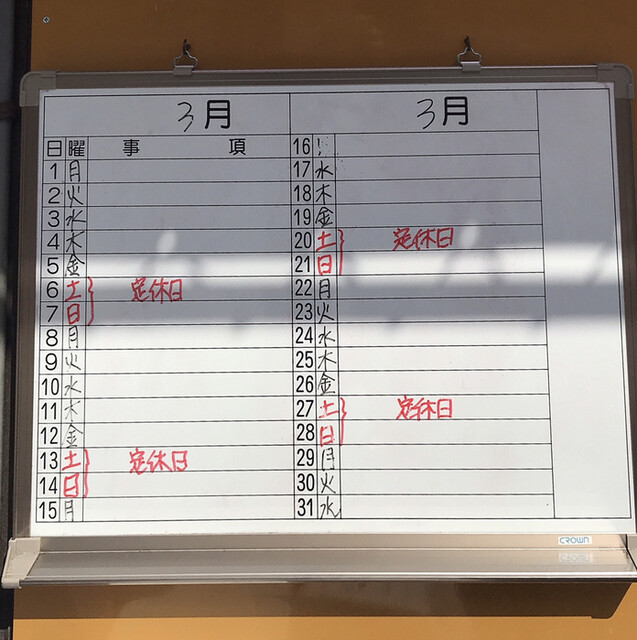 3月
日 曜 事 項
1 月
2 火
3 水
4 木
5 金
6 土 定休日
7 日
8 月
9 火
10 水
11 木
12 金
13 土 定休日
14 日
15 月
3月
16
17 水
18 木
19 金
20 土 定休日
21 日
22 月
23 火
24 水
25 木
26 金
27 土 定休日
28 日
29 月
30 火
31 水
CROWN